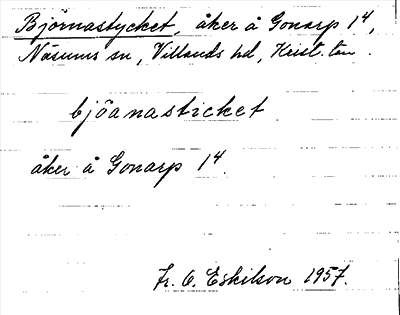 Björnastycket, åker å Gonarp 1⁴,
Näsums sn, Villands hd, Krist. län.
bjöanasticket
åker å Gonarp 1⁴.
Fr. O. Eskilson 1957.